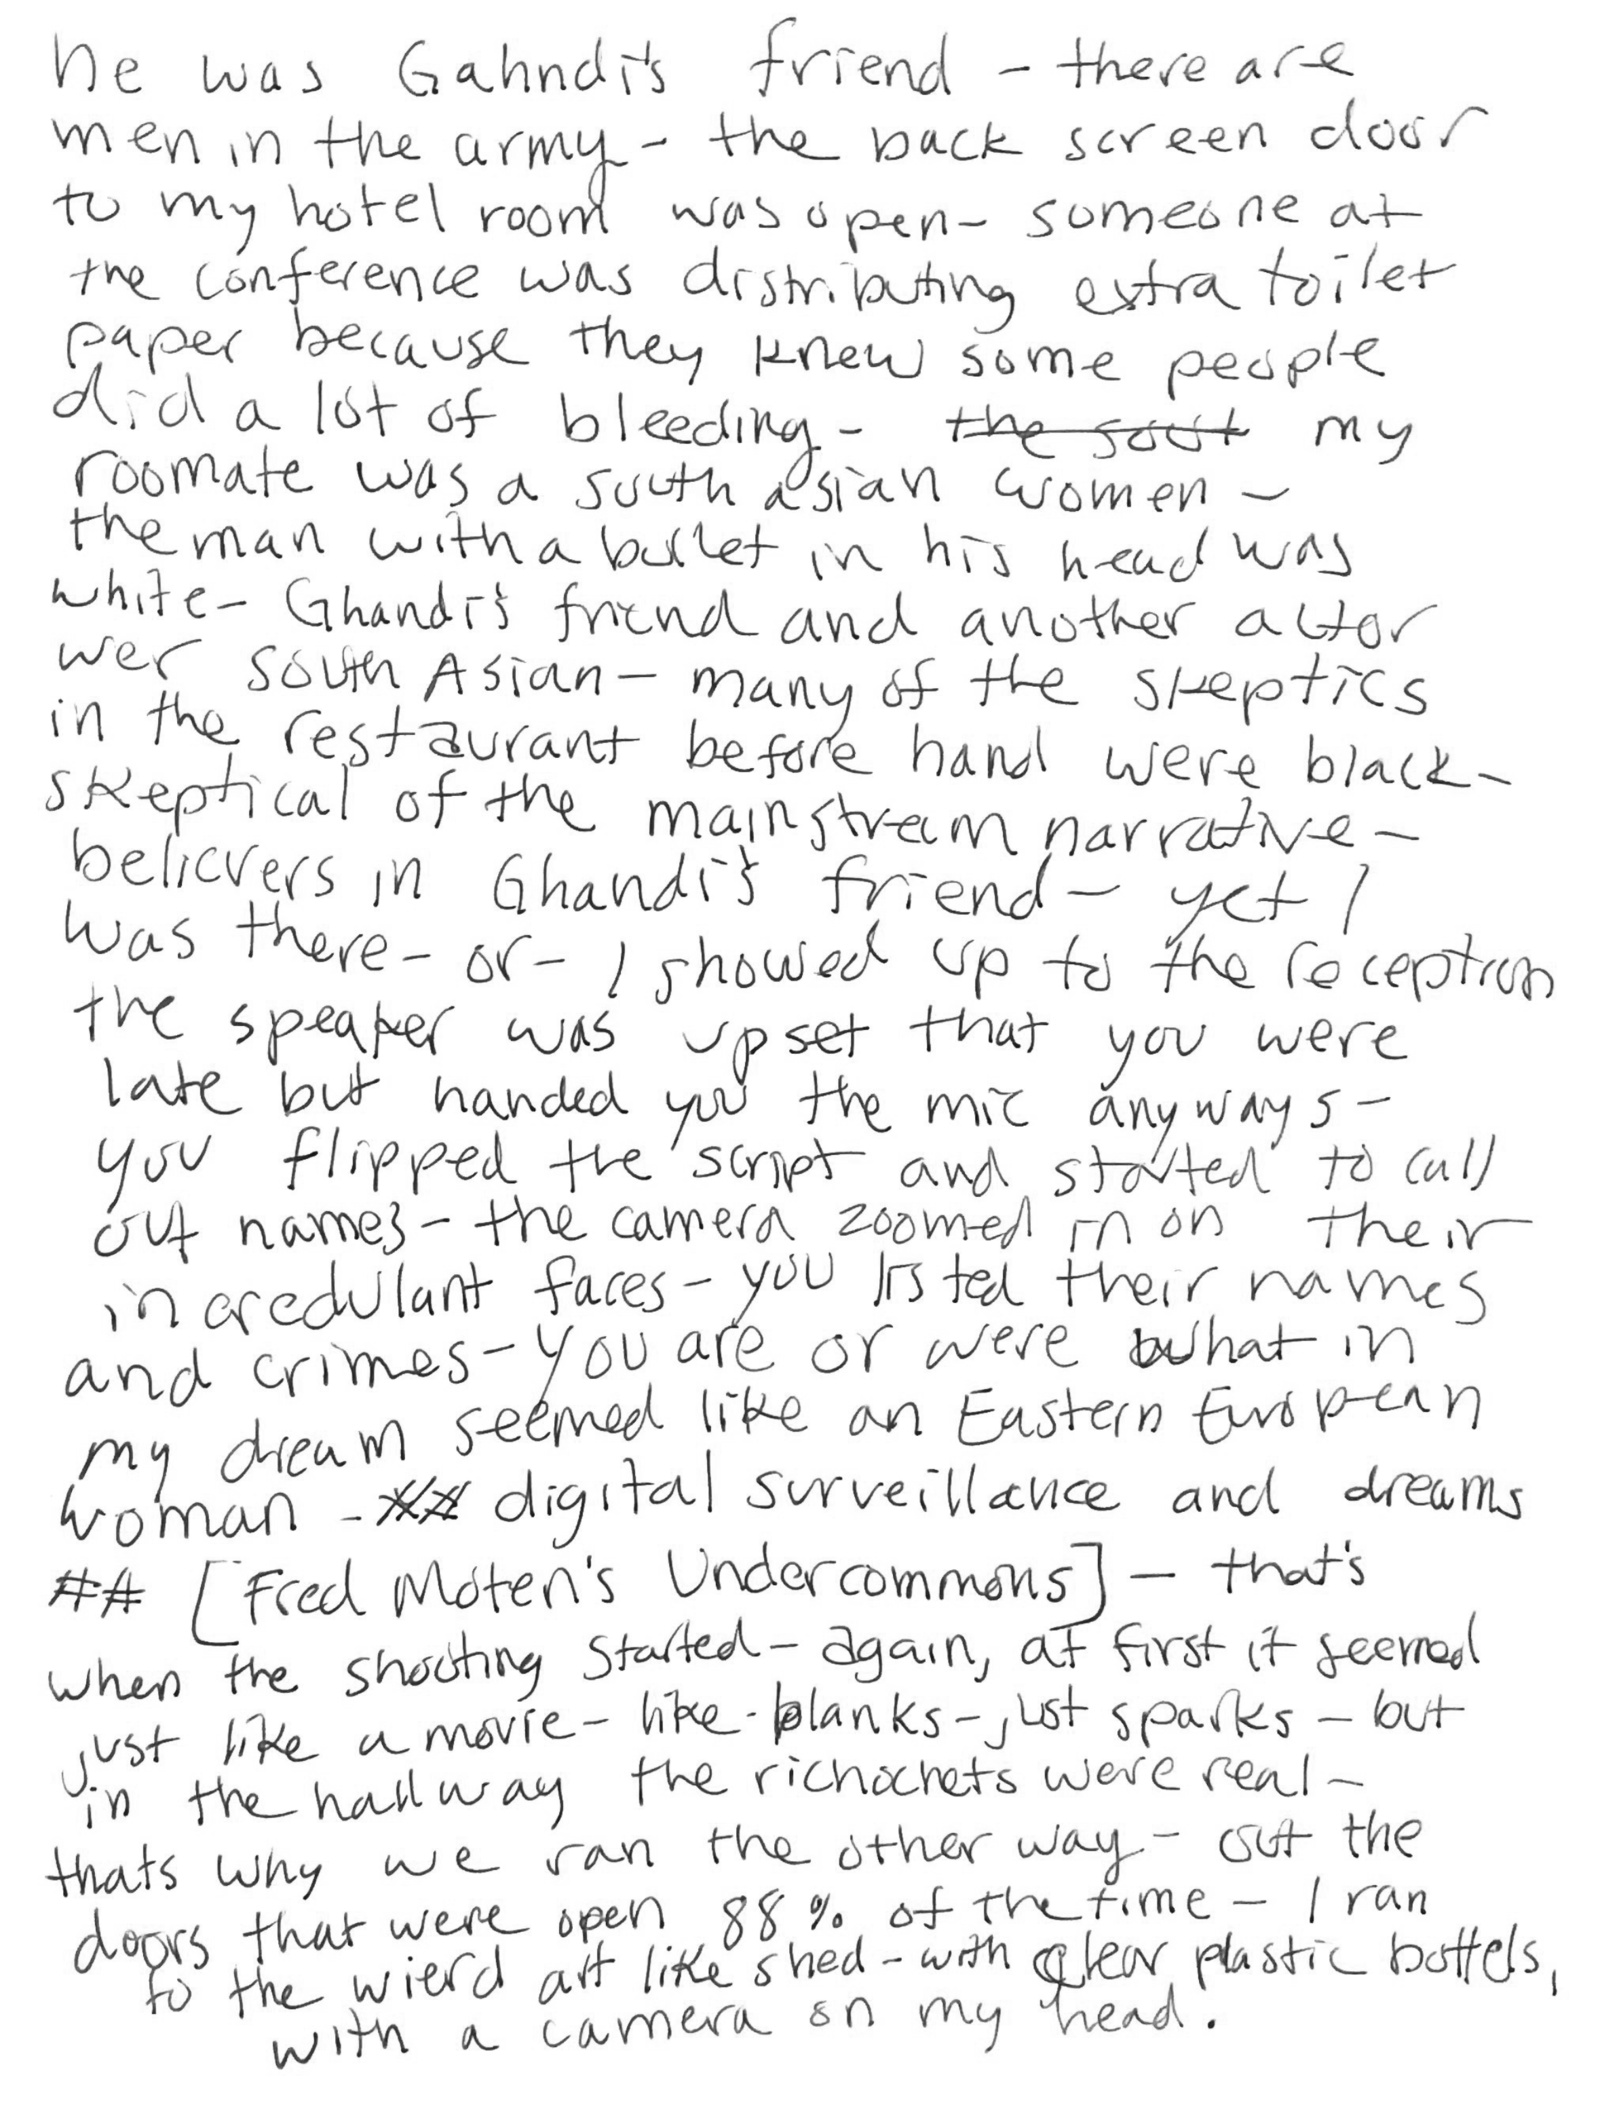 he was Gahndi's friend - there are
men in the army - the back screen door
to my hotel room was open - someone at
the conference was distributing extra toilet
paper because they knew some people
did a lot of bleeding - the sout my
roomate was a south asian women -
the man with a bullet in his head was
white - Ghandi's friend and another actor
wer south Asian - many of the skeptics
in the restaurant before hand were black -
skeptical of the mainstream narrative -
believers in Ghandi's friend - yet I
was there - or - I showed up to the reception
the speaker was upset that you were
late but handed you the mic anyways -
you flipped the script and started to call
out names - the camera zoomed in on their
incredulant faces - you listed their names
and crimes - you are or were what in
my dream seemed like an Eastern European
woman - ## digital surveillance and dreams
## [Fred Moten's Undercommons] - that's
when the shooting started - again, at first it seemed
just like a movie - like - blanks - just sparks - but
in the hallway the richochets were real -
thats why we ran the other way - out the
doors that were open 88% of the time - I ran
to the wierd art like shed - with clear plastic bottels,
with a camera on my head.